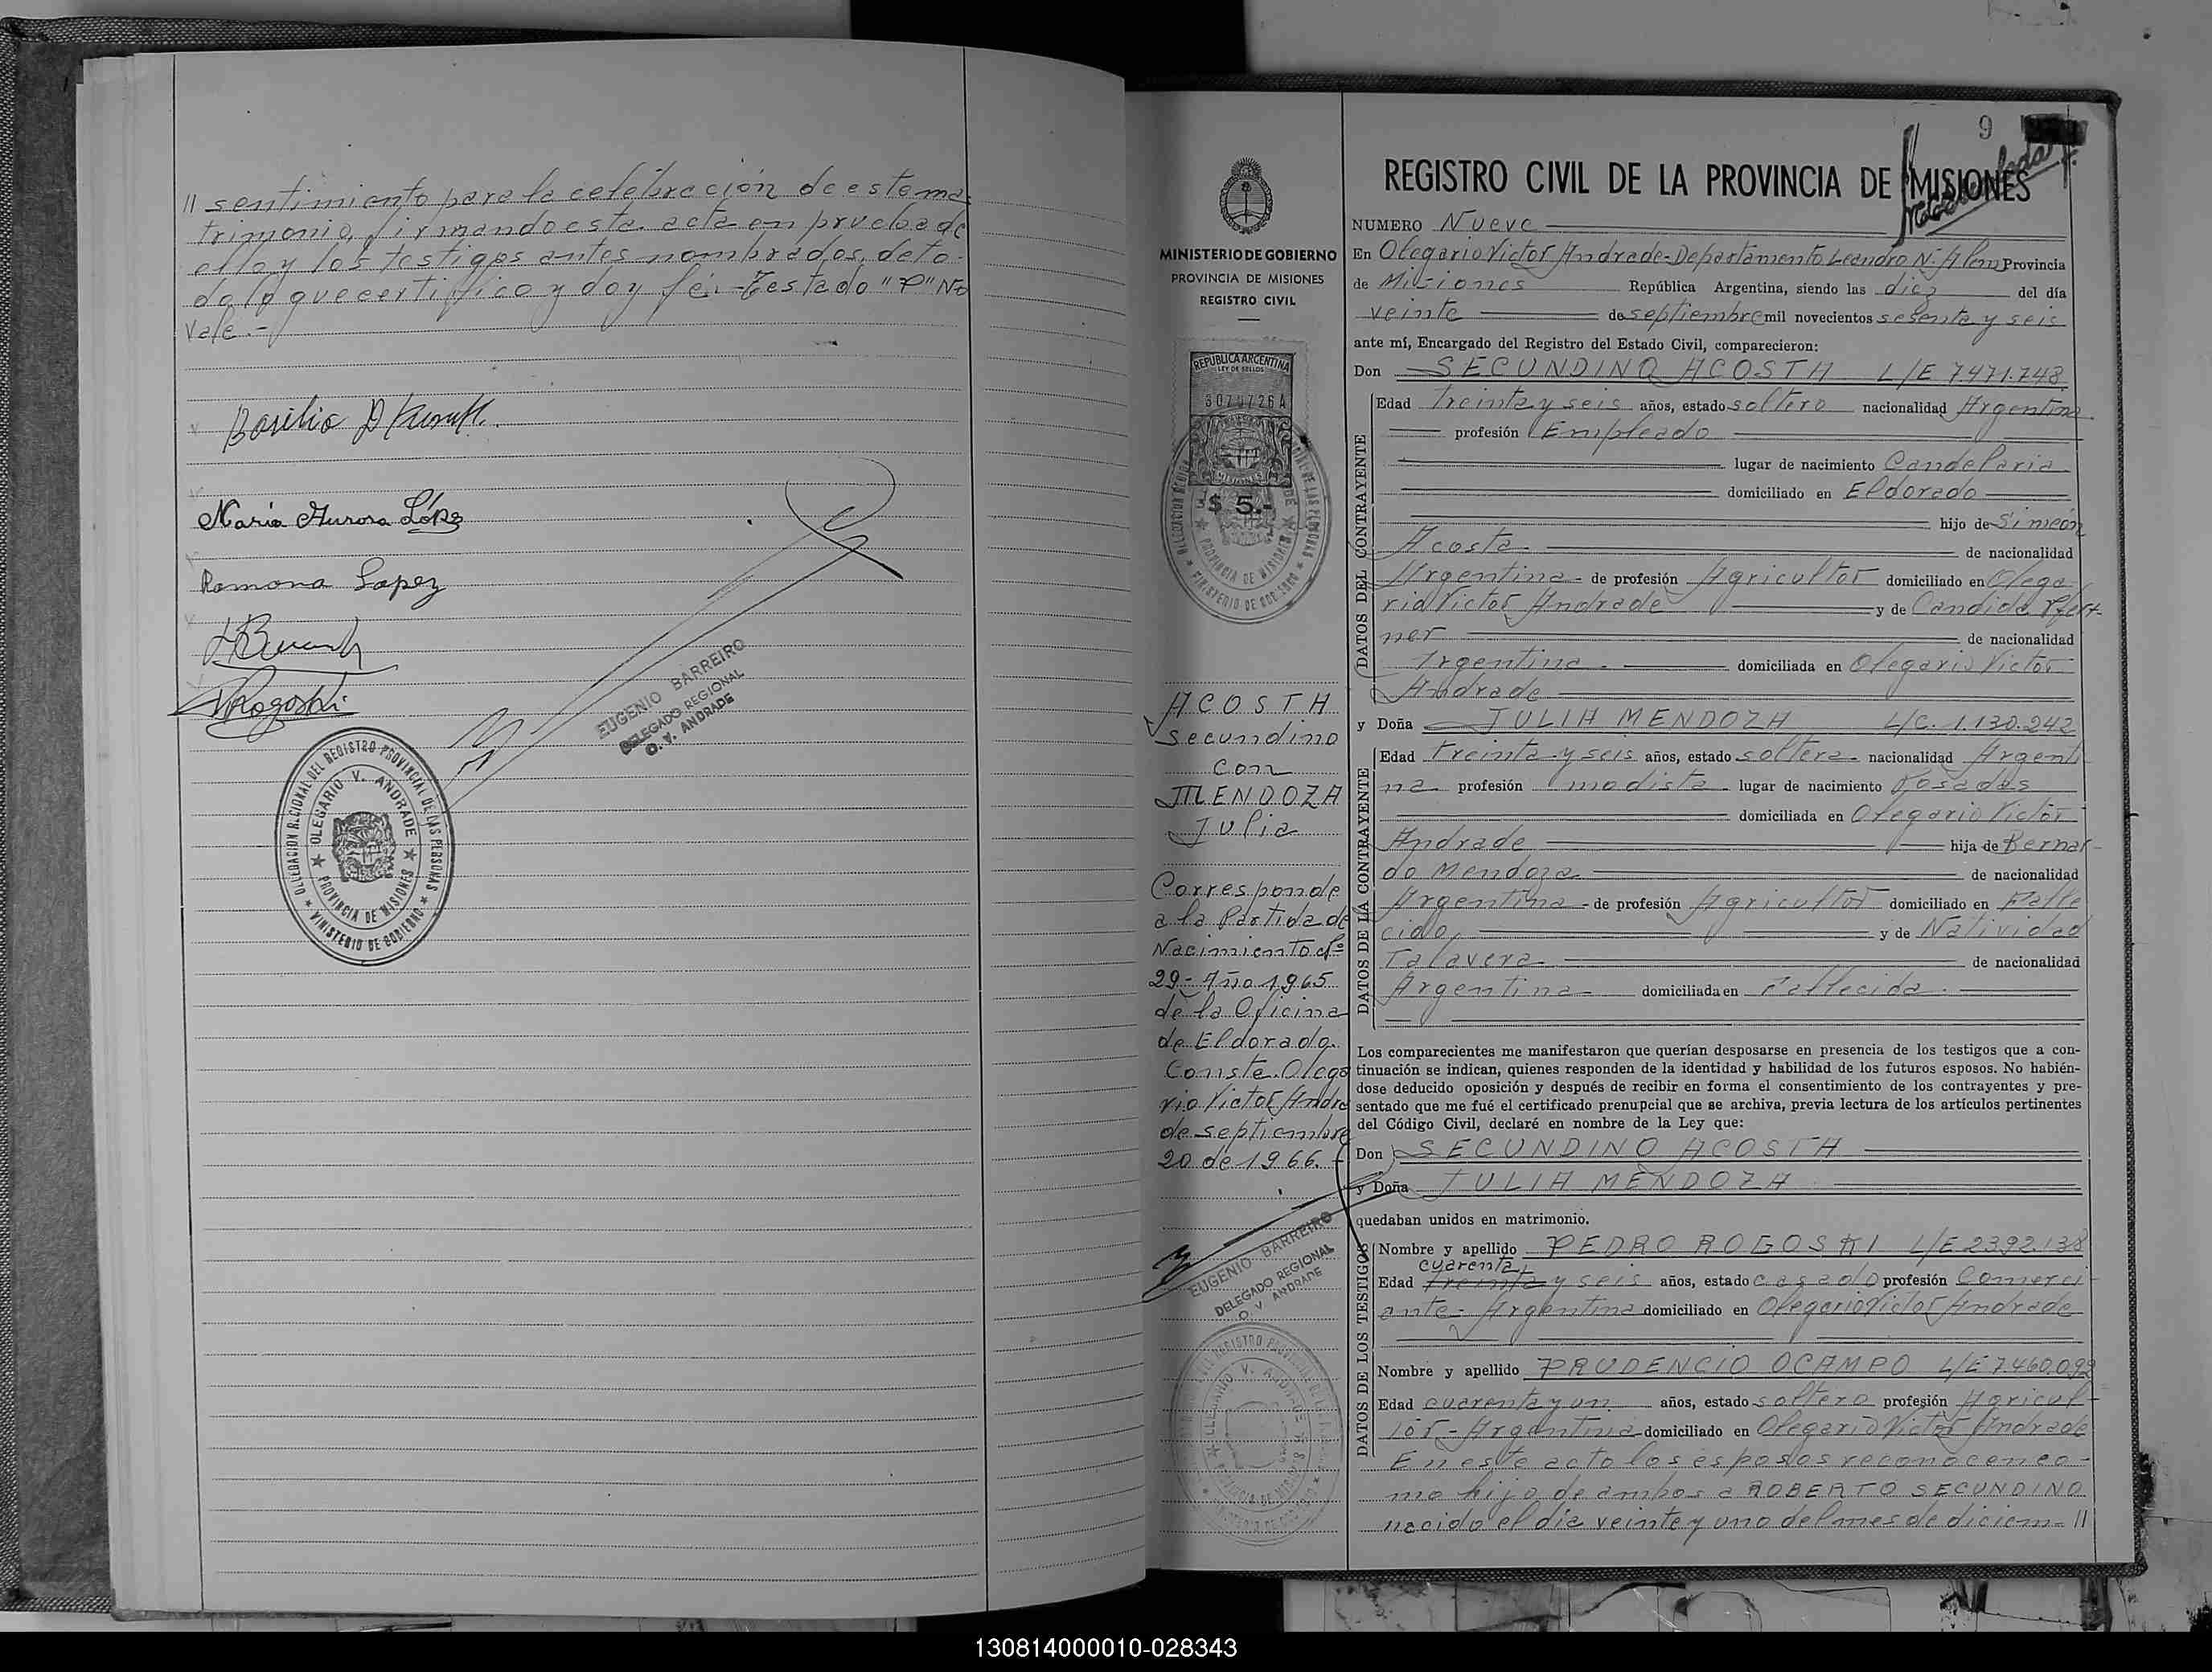 // sentimiento para la celebración de este ma-
trimonio, firmando esta acta en prueba de
ello y los testigos antes nombrados, de to-
do lo que certifico y doy fé.- Testado "P" No
Vale.-
Basilio
Maria Aurora López
Ramona Lopez
PRogoski
EUGENIO BARREIRO
DELEGADO REGIONAL
O. V. ANDRADE
DELEGACION REGIONAL DEL REGISTRO PROVINCIAL DE LAS PERSONAS
OLEGARIO V. ANDRADE
PROVINCIA DE MISIONES
MINISTERIO DE GOBIERNO
MINISTERIO DE GOBIERNO
PROVINCIA DE MISIONES
REGISTRO CIVIL
REPUBLICA ARGENTINA
LEY DE SELLOS
MISIONES
$ 5.-
PROVINCIA DE MISIONES
MINISTERIO DE GOBIERNO
ACOSTA
Secundino
con
MENDOZA
Julia
Corresponde
a la Partida de
Nacimiento Nº
29- Año 1965
de la Oficina
de Eldorado.
Conste. Olega
rio Victor Andra
de septiembre
20 de 1966.-
EUGENIO BARREIRO
DELEGADO REGIONAL
O. V. ANDRADE
9
REGISTRO CIVIL DE LA PROVINCIA DE MISIONES
NUMERO Nueve
En Olegario Victor Andrade-Departamento Leandro N. Alem Provincia
de Misiones República Argentina, siendo las diez del día
veinte de septiembre mil novecientos sesenta y seis
ante mí, Encargado del Registro del Estado Civil, comparecieron:
Don SECUNDINO ACOSTA L/E 7.471.748
DATOS DEL CONTRAYENTE
Edad treinta y seis años, estado soltero nacionalidad Argentina
profesión Empleado
lugar de nacimiento Candelaria
domiciliado en Eldorado
hijo de Simeón
Acosta.- de nacionalidad
Argentina - de profesión Agricultor domiciliado en Olega
rio Victor Andrade y de Candida
ner de nacionalidad
Argentina.- domiciliada en Olegario Victor
Andrade
y Doña JULIA MENDOZA L/C. 1.130.242
DATOS DE LA CONTRAYENTE
Edad treinta y seis años, estado soltera- nacionalidad Argenti
na profesión modista - lugar de nacimiento Posadas
domiciliada en Olegario Victor
Andrade hija de Bernar-
do Mendoza de nacionalidad
Argentina - de profesión Agricultor domiciliado en Falle
cido, y de Natividad
Talavera- de nacionalidad
Argentina - domiciliada en Fallecida.-
Los comparecientes me manifestaron que querían desposarse en presencia de los testigos que a con-
tinuación se indican, quienes responden de la identidad y habilidad de los futuros esposos. No habién-
dose deducido oposición y después de recibir en forma el consentimiento de los contrayentes y pre-
sentado que me fué el certificado prenupcial que se archiva, previa lectura de los artículos pertinentes
del Código Civil, declaré en nombre de la Ley que:
Don SECUNDINO ACOSTA
y Doña JULIA MENDOZA
quedaban unidos en matrimonio.
DATOS DE LOS TESTIGOS
Nombre y apellido PEDRO ROGOSKI L/E 2.392.138
cuarenta
Edad treinta y seis años, estado casado profesión Comerci-
ante - Argentina domiciliado en Olegario Victor Andrade
Nombre y apellido PRUDENCIO OCAMPO L/E 7.460.092
Edad cuarenta y un años, estado soltero profesión Agricul-
tor - Argentina domiciliado en Olegario Victor Andrade
En este acto los esposos reconocen co-
mo hijo de ambos a ROBERTO SECUNDINO
nacido el día veinte y uno del mes de diciem- //
130814000010-028343